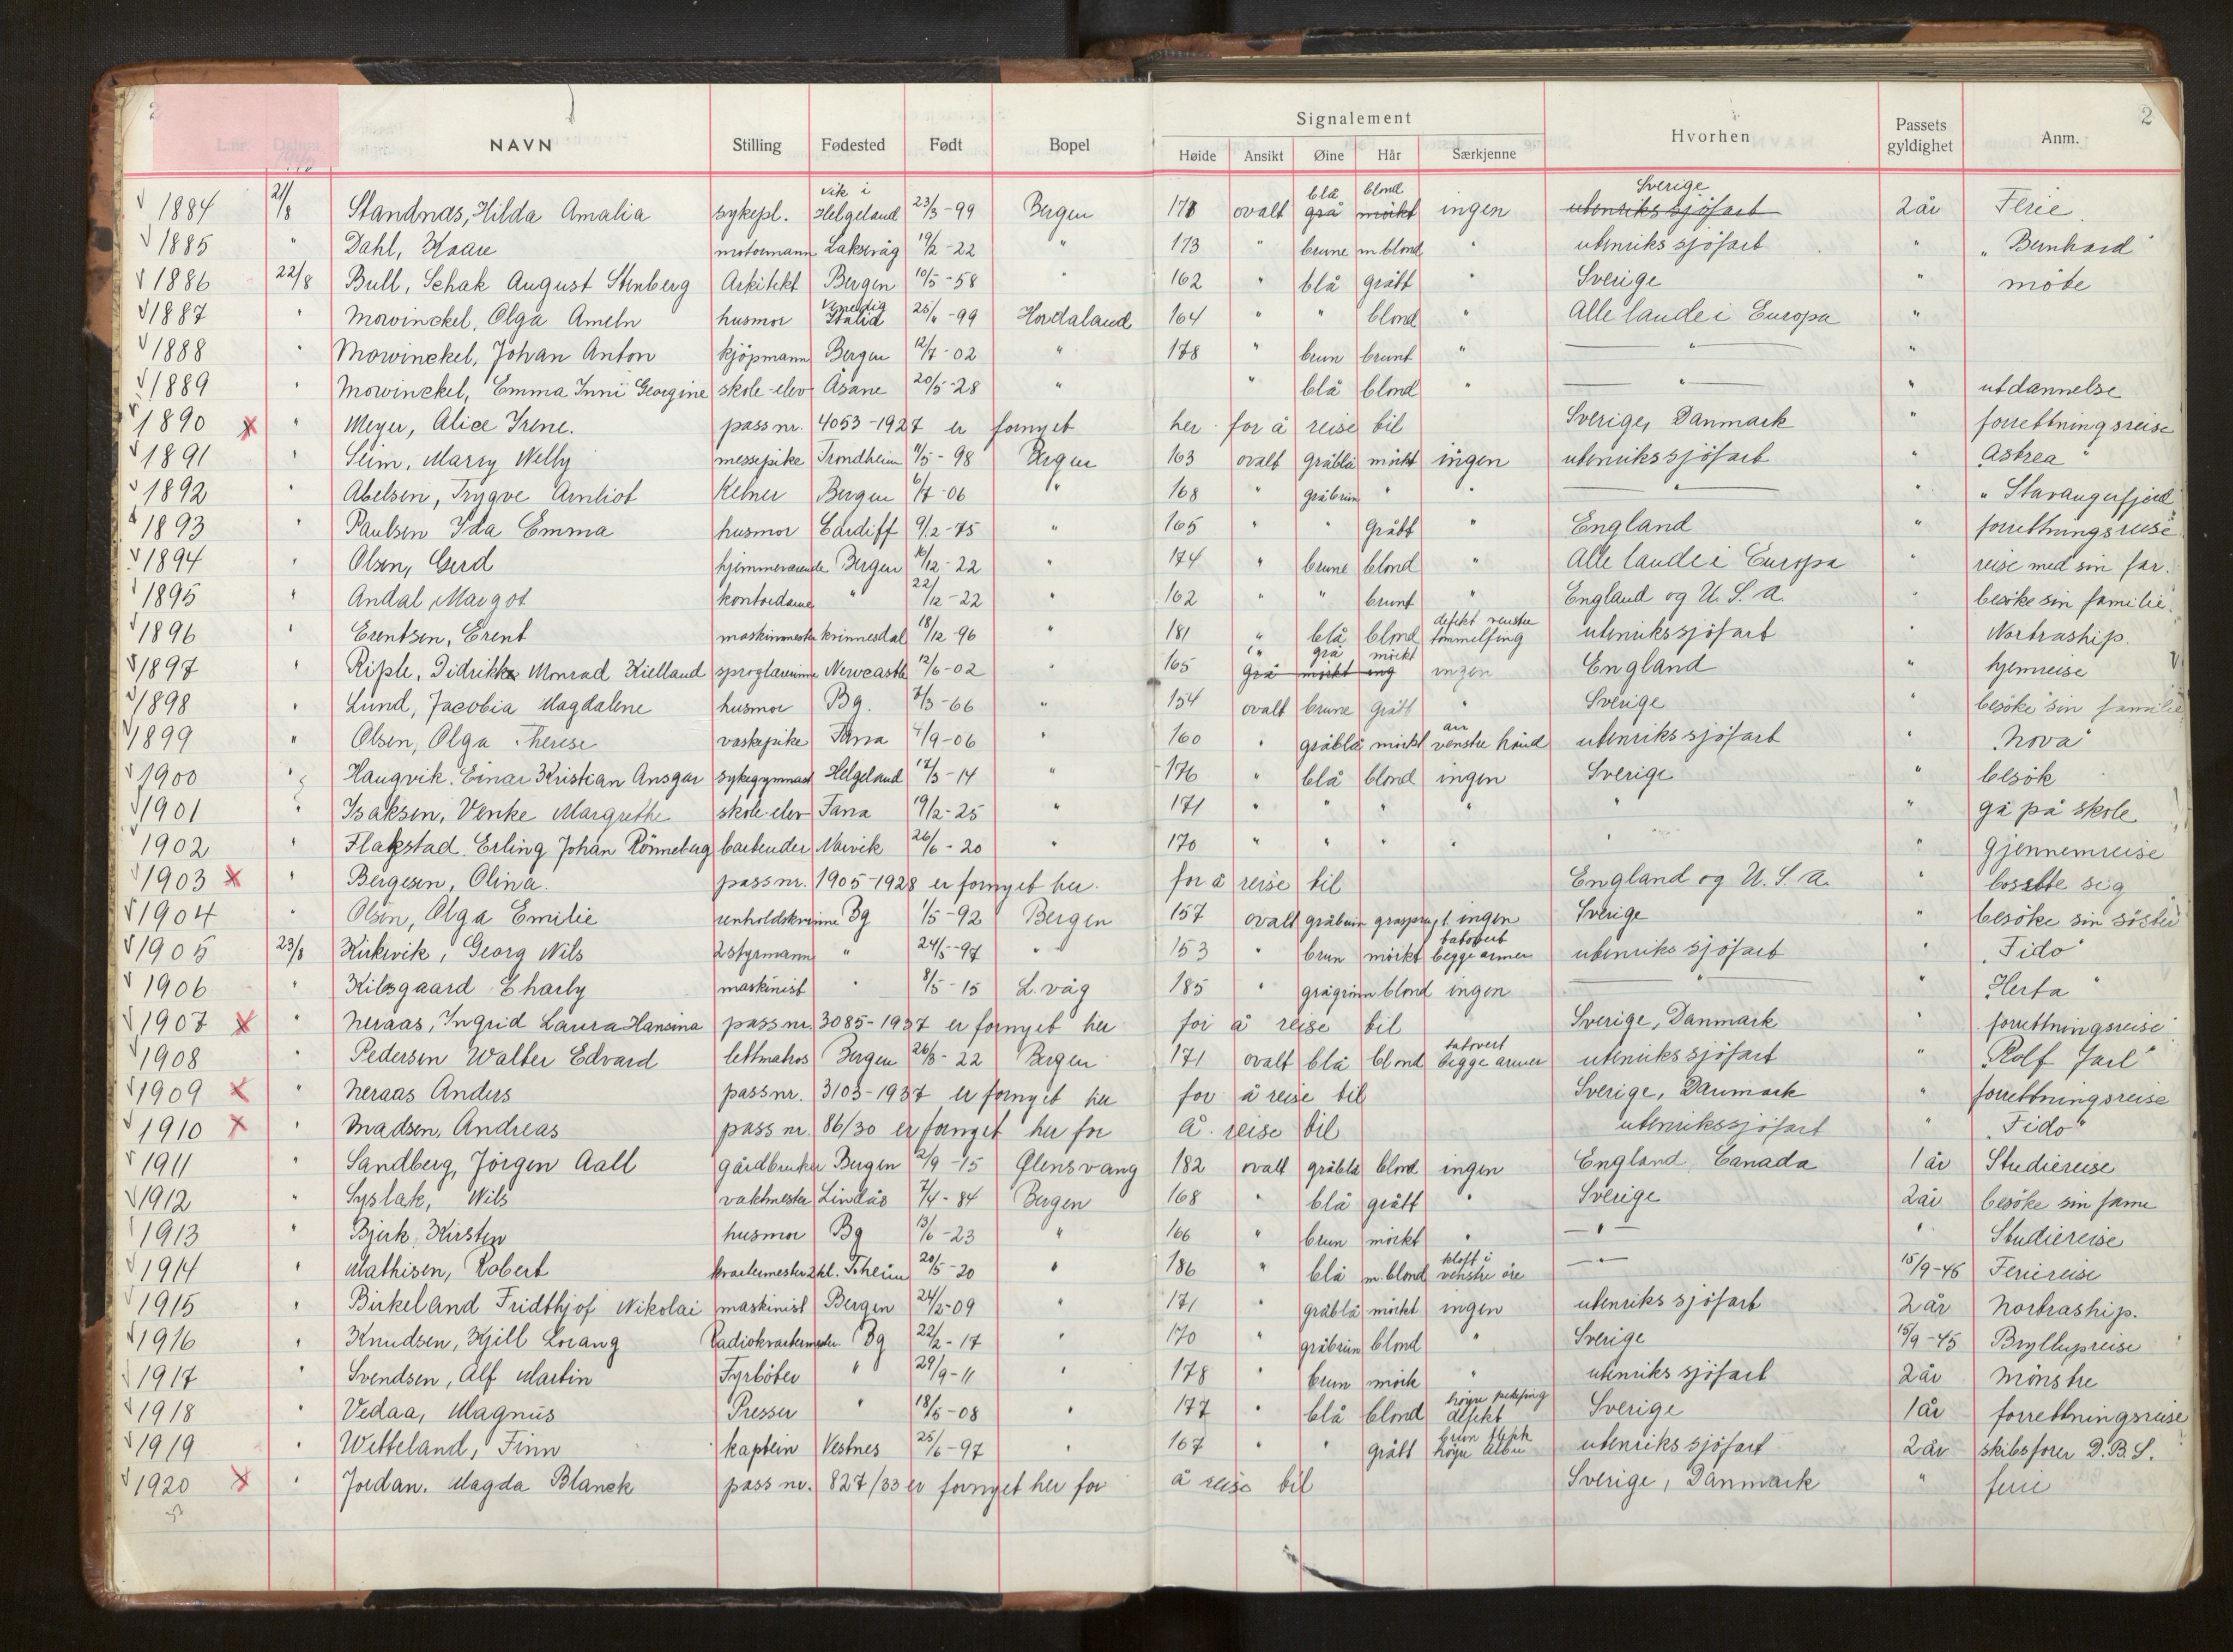 2
L.nr. Datum NAVN Stilling Fødested Født Bopel Signalement Høide Ansikt Øine Hår Særkjenne Hvorhen Passets gyldighet Anm.
1884 21/8 Standnas, Hilda Amalia sykepl. Vik i Helgeland 23/3-99 Bergen 178 ovalt blå blond ingen Sverige 2 år Ferie
1885 " Dahl, Kaare motormann Laksevåg 19/2-22 " 173 " brune m blond " utenriks sjöfart " "Bernhard"
1886 22/8 Bull, Schak August Stenberg Arkitekt Bergen 10/5-58 " 162 " blå grått " Sverige " möte
1887 " Mowinckel, Olga Ameln husmor Venedig Italia -99 Hordaland 164 " " blond " Alle lande i Europa "
1888 " Mowinckel, Johan Anton kjöpmann Bergen 12/7-02 " 178 " brun brunt " " "
1889 " Mowinckel, Emma Inni Georgine skole-elev Åsane 20/5-28 " " blå blond " " " utdannelse
1890 x " Meyer, Alice Irene. pass nr. 4053-1927 er fornyet her for å reise til Sverige, Danmark " forrettningsreise
1891 " Seim, Marry Welly messepike Trondheim -98 Bergen 163 ovalt gråblå mörkt ingen utenrikssjöfart " "Astrea"
1892 " Abelsen, Trygve Arnliot Kelner Bergen 6/7-06 " 168 " gråbrun " " " " "Stavangerfjord"
1893 " Paulsen Ida Emma husmor Cardiff 9/2-75 " 165 " " Grått " England " forrettningsreise
1894 " Olsen, Gerd hjemmeværende Bergen 16/12-22 " 174 " brune blond " Alle lande i Europa " reise med sin far.
1895 " Andal Margot kontordame " 22/12-22 " 162 " " brunt " England og U.S.A. " besöke sin familie.
1896 " Erentsen, Erent maskinmester krinnesdal 18/12-96 " 181 " blå blond defekt venstre tommelfing utenrikssjöfart " Nortraship.
1897 " Riple, Didrikke Monrad Kielland sproglærerinne Newcastle 12/6-02 " 165 " grå mörkt ingen England " hjemreise
1898 " Lund, Jacobia Magdalene husmor Bg. 7/3-66 " 154 ovalt brune Grått " Sverige " besöke sin familie
1899 " Olsen, Olga Therese vaskepike Fana 4/9-06 " 160 " gråblå mörkt arr venstre hånd utenrikssjöfart " "Nova"
1900 " Haugvik. Einar Kristian Ansgar sykegymnast Helgeland 12/3-14 " 176 " blå blond ingen Sverige " besök
1901 " Isaksen, Venke Margrethe skole-elev Fana 19/2-25 " 171 " " " " " " gå på skole
1902 " Flakstad. Erling Johan Rönneberg bartender Narvik 26/6-20 " 170 " " " " " " Gjennemreise
1903 x " Bergesen, Olina. pass nr. 1905-1928 er fornyet her. for å reise til England og U.S.A. " bosette sig
1904 " Olsen, Olga Emilie renholdskvinne Bg 1/5-92 Bergen 157 ovalt gråbrun gråsprengt. ingen Sverige " besöke sin söster
1905 23/8 Kirkevik, Georg Nils 2styrmann " 24/5-97 " 153 " brun mörkt tatovert begge armer utenriks sjöfart " "Fido"
1906 " Kilsgaard Charly maskinist " 8/5-15 L.våg 185 " grågrönn blond ingen " " "Herta"
1907 x " Neraas, Ingrid Laura Hansina pass nr. 3085-1937 er fornyet her for å reise til Sverige, Danmark " forrettningsreise
1908 " Pedersen Walter Edvard lettmatros Bergen 26/3-22 Bergen 171 ovalt blå blond tatovert begge armer utenrikssjöfart " "Rolf Jarl"
1909 x " Neraas Anders pass nr. 3103-1937 er fornyet her for å reise til Sverige, Danmark " forrettningsreise
1910 x " Madsen, Andreas pass nr. 86/30 er fornyet her for å reise til utenrikssjöfart " "Fido"
1911 " Sandberg, Jörgen Aall gårdbruker Bergen 2/9-15 Ølensvang 182 ovalt gråblå blond ingen England, Canada 1 år Studiereise
1912 " Syslak, Nils vaktmester Lindås 7/4-84 Bergen 168 " blå grått " Sverige 2 år besöke sin fame
1913 " Bjerk, Kirsten husmor Bg 13/6-23 " 166 " brun mörkt " " " Studiereise
1914 " Mathisen, Robert kvartermester 2 kl. T.heim 20/5-20 " 186 " blå m.blond kloft i venstre öre " 15/9-46 Feriereise
1915 " Birkeland Fridthjof Nikolai maskinist Bergen 24/2-09 " 171 " gråblå mörkt ingen utenriks sjöfart 2 år Nortraship.
1916 " Knudsen, Kjell Lorang Radiokvartermester. Bg 22/2-17 " 170 " gråbrun blond " Sverige 15/9-45 Bryllupreise
1917 " Svendsen, Alf Martin Fyrböter " 29/9-11 " 178 " brun mörk " utenriks sjöfart 2 år Mönstre
1918 " Vedaa, Magnus Presser " 18/5-08 " 177 " blå blond högre pekefing defekt Sverige 1 år forrettningsreise
1919 " Wetteland, Finn kaptein Vestnes 25/6-97 " 167 " " grått högre albu utenriks sjöfart 2 år skibsförer D.B.S.
1920 x " Jordan. Magda Blanck pass nr. 827/33 er fornyet her for å reise til Sverige, Danmark " ferie